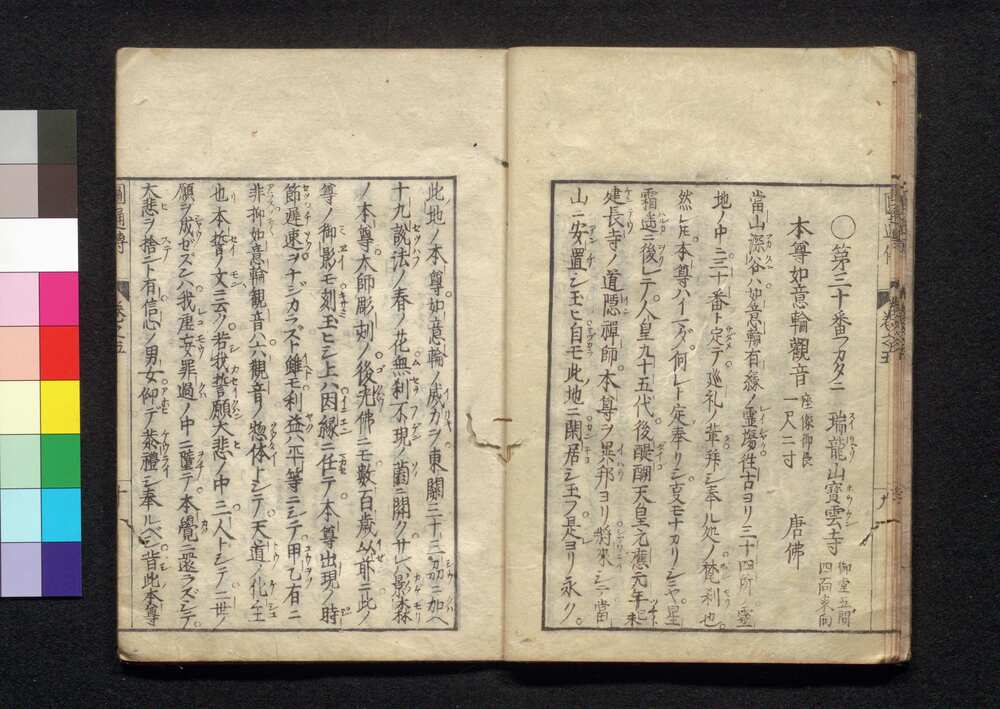 ○第三十番フカタニ 瑞龍山寳雲寺 御堂五間四面東向
本尊如意輪觀音 座像御長一尺二寸 唐佛
當山深谷ハ如意輪有縁ノ霊場往古ヨリ三十四所ノ霊
地ノ中ニ三十番ト定テ巡礼ノ輩拜シ奉ル処ノ梵利也
然レ𪜈本尊ハイマダ何レト定奉リシ㕝モナカリシニヤ星
霜遙ニ後レテ人皇九十五代後醍醐天皇元應元年己未
建長寺ノ道隠禪師本尊ヲ異邦ヨリ將來シテ當
山ニ安置シ玉ヒ自モ此地ニ閑居シ玉フ是ヨリ永ク
此地ノ本尊如意輪ノ威力ヲ東關三十三所ニ加ヘ
十九説法ノ春ノ花無利不現ノ薗ニ開クサレハ影森
ノ本尊大師彫刻ノ後先佛ニモ數百歳以前ニ此ノ
尊ノ御影モ刻玉ヒシ上ハ因縁ニ任テ本尊出現ノ時
節遅速ヲナジカラズト雖モ利益ハ平等ニシテ甲乙有ニ
非抑如意輪觀音ハ六觀音ノ惣体トシテ天道ノ化主
也本誓ノ文ニ云ク若我誓願大悲ノ中一人トシテ二世ノ
願ヲ成ゼズンハ我虚妄罪過ノ中ニ墮テ本覺ニ還ラズシテ
大悲ヲ捨ント有信心ノ男女仰テ恭禮シ奉ルベシ昔此本尊
圓通傳 巻之五